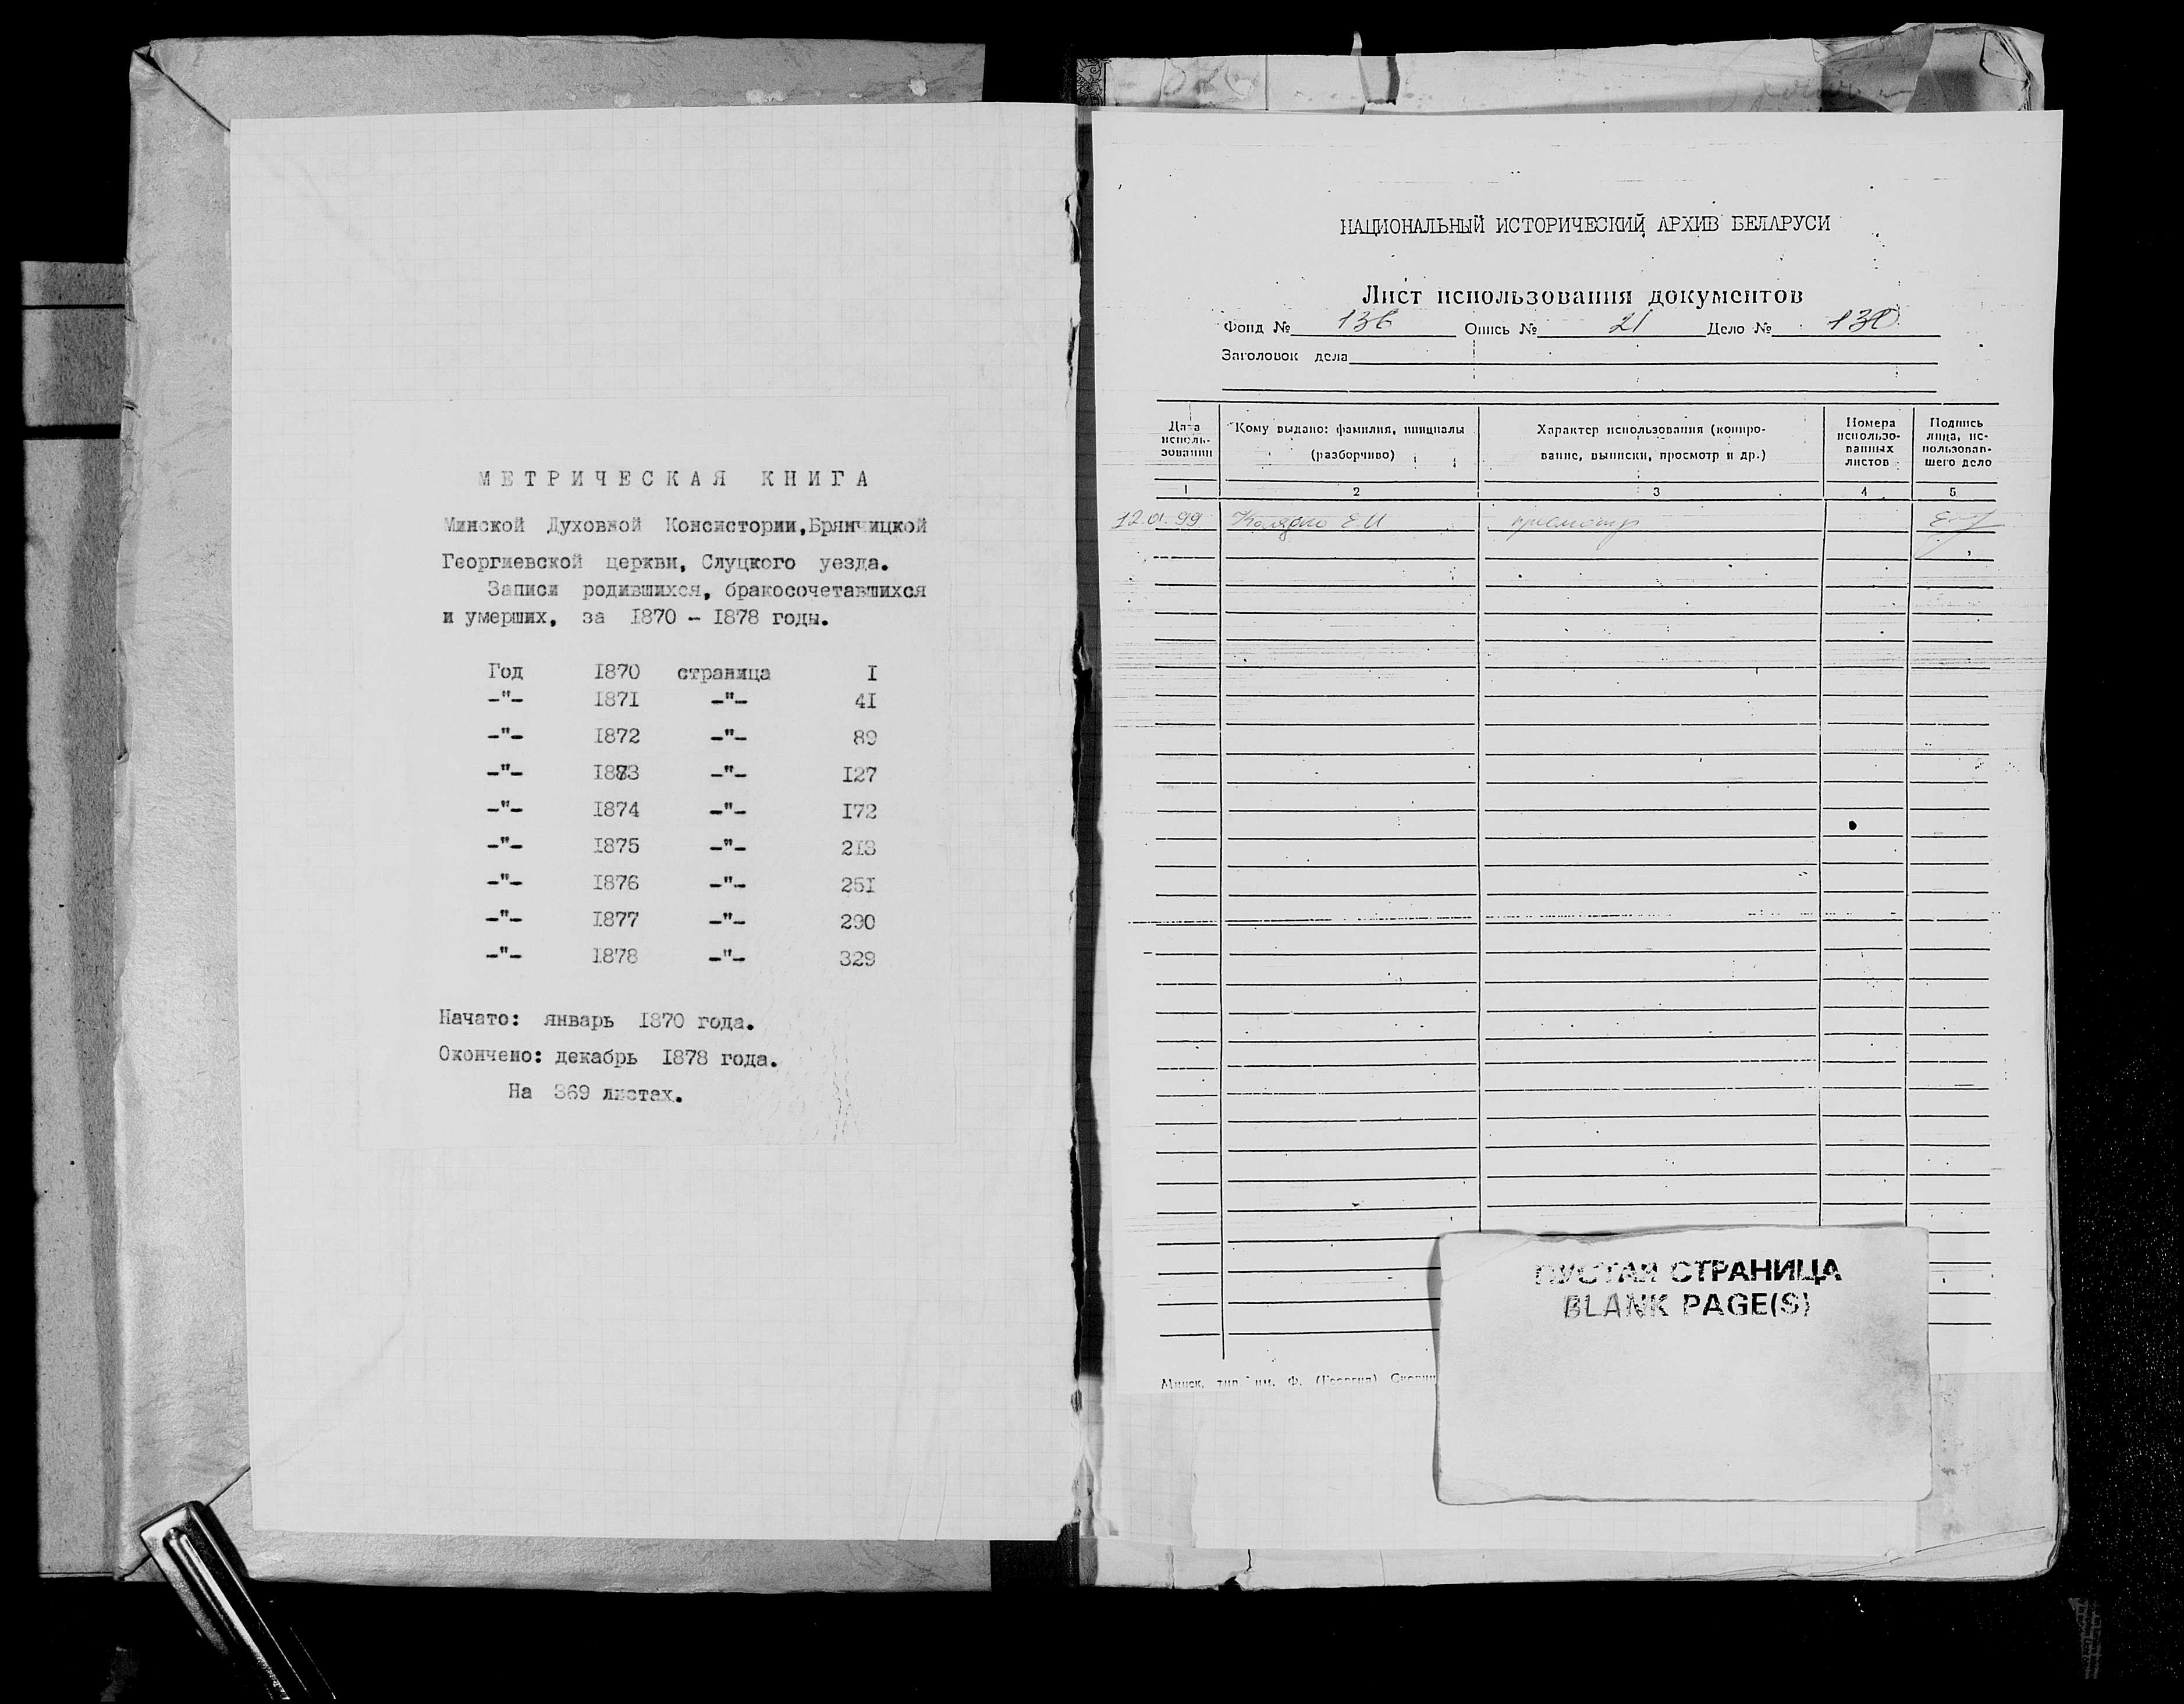 МЕТРИЧЕСКАЯ КНИГА
Минской Духовной Консистории, Брянчицкой
Георгиевской церкви, Слуцкого уезда.
Записи родившихся, бракосочетавшихся
и умерших, за 1870 - 1878 годы.
Год 1870 страница I
-"- 1871 -"- 41
-"- 1872 -"- 89
-"- 1873 -"- 127
-"- 1874 -"- 172
-"- 1875 -"- 213
-"- 1876 -"- 251
-"- 1877 -"- 290
-"- 1878 -"- 329
Начато: январь 1870 года.
Окончено: декабрь 1878 года.
На 369 листах.
НАЦИОНАЛЬНЫЙ ИСТОРИЧЕСКИЙ АРХИВ БЕЛАРУСИ
Лист использования документов
Фонд № 136 Опись № 21 Дело № 130
Заголовок дела
Дата исполь-зования
Кому выдано: фамилия, инициалы (разборчиво)
Характер использования (копиро-вание, выписки, просмотр и др.)
Номера использо-ванных листов
Подпись лица, ис-пользовав-шего дело
1 2 3 4 5
12.01.99 Е.И просмотр
Минск, тип им. Ф. (Георгия)
ПУСТАЯ СТРАНИЦА
BLANK PAGE(S)